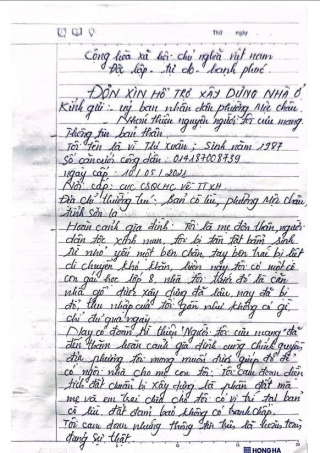 Thứ ngày
Cộng hòa xã hội chủ nghĩa việt nam
Độc lập - tự do - hạnh phúc.
ĐƠN XIN HỖ TRỢ XÂY DỰNG NHÀ Ở
Kính gửi: uỷ ban nhân dân phường Mộc Châu.
Nhóm thiện nguyện người tôi cưu mang.
Thông tin bản thân
Tôi tên là Vì Thị Xuân; Sinh năm 1987
Số căn cước công dân: 014187008739
ngày cấp: 10/05/2021
Nơi cấp: cục CSQLHC Về TTXH
Địa chỉ thường trú: bản cò lìu, phường Mộc Châu,
tỉnh Sơn la
Hoàn cảnh gia đình: Tôi là mẹ đơn thân, người
dân tộc xinh mun, tôi bị tàn tật bẩm sinh
từ nhỏ yếu một bên chân, tay bên trái bị liệt
di chuyển khó khăn, hiện nay tôi có một cô
con gái học lớp 8, nhà tôi trước đó là căn
nhà gỗ được xây dựng đã lâu, nay đã bị
đổ, thu nhập của tôi gần như không có gì,
chỉ đủ qua ngày
Nay có đoàn từ thiện "Người tôi cưu mang" đã
đến thăm hoàn cảnh gia đình cùng chính quyền
địa phương tôi mong muốn được giúp đỡ để
có ngôi nhà cho mẹ con tôi. Tôi cam đoan diện
tích đất chuẩn bị xây dựng là phần đất mà
mẹ và em trai cho tôi có vị trí tại bản
cò lìu, đất đảm bảo không có tranh chấp.
Tôi cam đoan những thông tin trên là hoàn toàn
đúng sự thật.
HONG HA